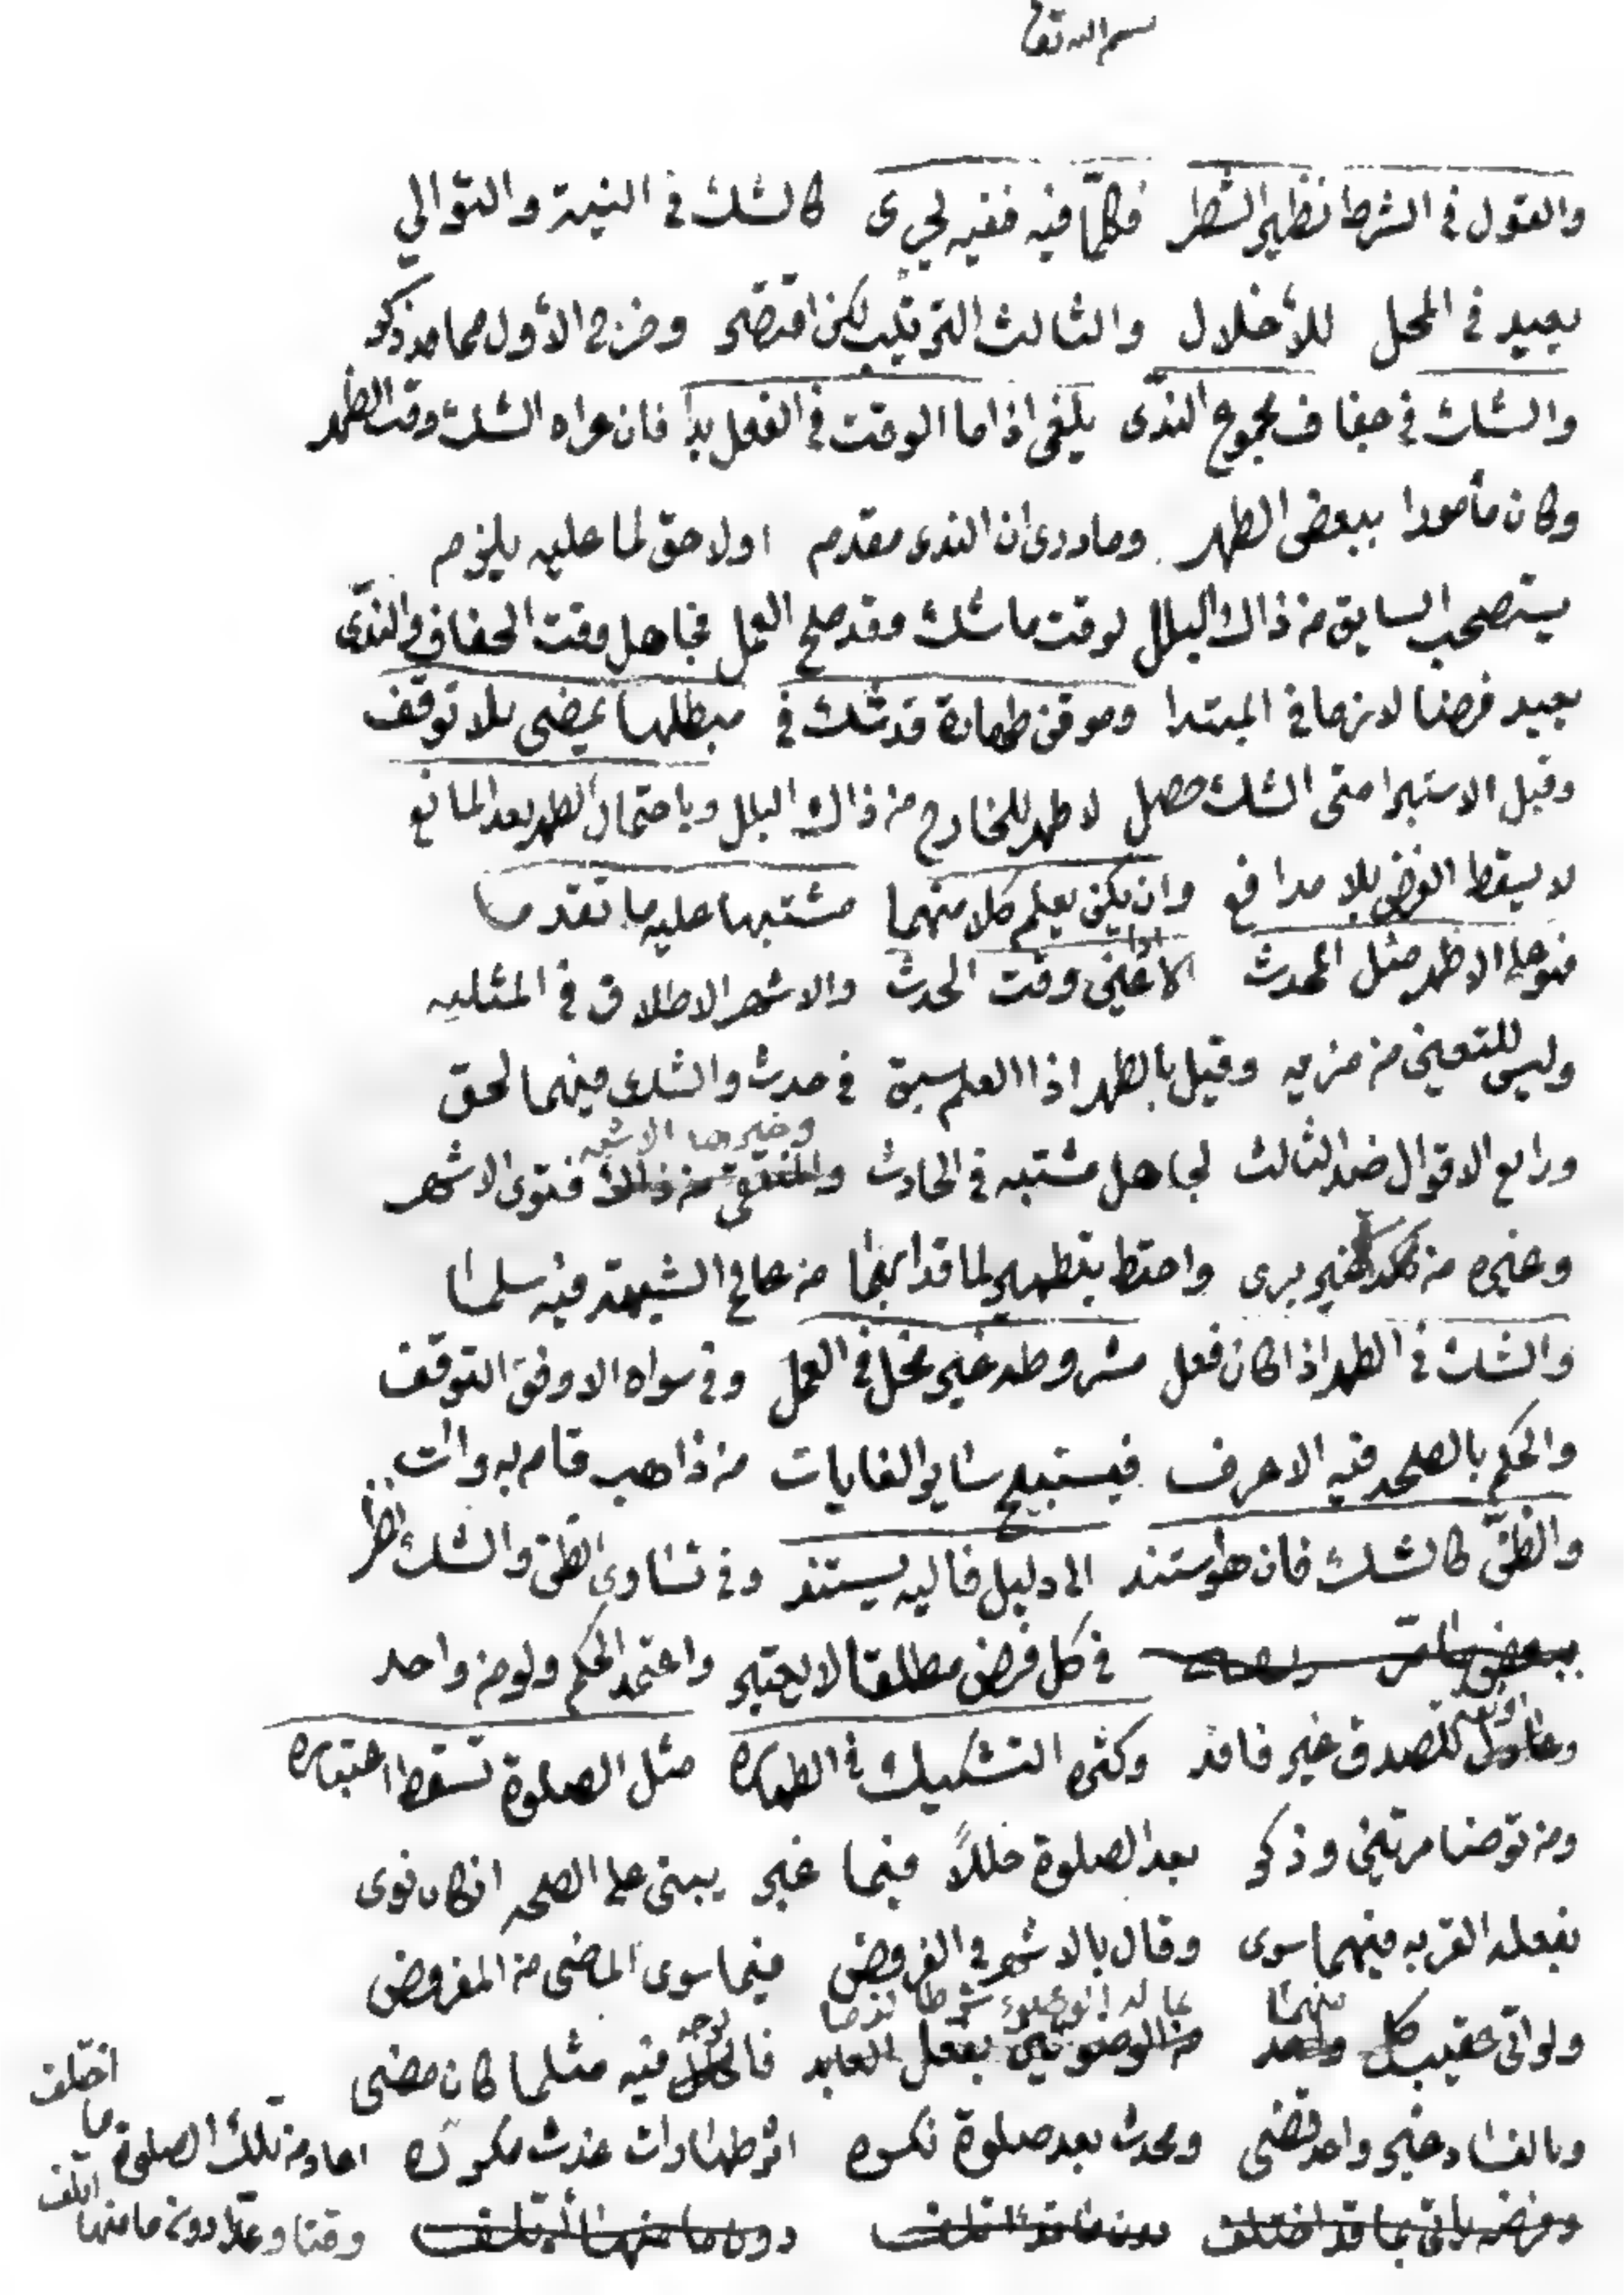 بسم الله تعا
والقول في الشرط نظير الشطر فكلما فيه ففيه يجري كالشك في النية والتوالي
يعيد في المحل للأخلال والثالث الترتيب لكن اقتضى وضرح الأول مما مد ذكر
والشك في جفاف مجموع الندى يلغى اذا ما الوقت في الفعل بدا فان عراه الشك وقت الطهر
وكان مأمورا ببعض الطهر وما درى ان الندى مقدم او لاحق لما عليه يلزم
يستصحب السابق من ذاك البلل لوقت ما شك وقد صح العمل فجاهل وقت الجفاف والندى
يعيد فرضا لازما في المبتدا وموقن طهارة قد شك في مبطلها يمضي بلا توقف
وقبل الاستبرا متى الشك حصل لا طهر للخارج من ذاك البلل وباحتمال الطهر بعد المانع
لا يسقط الفرض بلا مدافع وان يكن يعلم كلا منهما مشتبها عليه ما تقدما
فهو على الاظهر مثل المحدث الا اذا عين وقت الحدث والاشهر الاطلاق في المثليه
وليس للتعيين من مزيه وقيل بالطهر اذا العلم سبق في حدث والشك فيهما لحق
ورابع الاقوال ضد الثالث لجاهل مشتبه في الحادث وخيرها الاشهر فتوى الاشهر
وغيره من كل غير بري واحتط بتطهير لما قد ابهما من عالم الشبهة فيه سلما
والشك في الطهر اذا كان فعل مشروطه غير مخل في العمل وفي سواه الاوفق التوقف
والحكم بالصحه فيه الاعرف فيستبيح سائر الغايات من ذاهب قام به وات
والظن كالشك فان هو استند الى دليل فاليه يستند وفي تساوي الظن والشك نظر
في كل فرض مطلقا لا يعتبر واعتمد الحكم ولو من واحد
للصدق غير فاقد وكثره التشكيك في الطهاره مثل الصلوة تسقط اعتباره
ومن توضا مرتين وذكر بعد الصلوة خللاً فيما غبر يبنى على الصحه ان كان نوى
بفعله القربه فيهما سوى وقال بالاشهر في الفروض فيما سوى الماضى من المفروض
ولو اتى عقيب كل منهما فالوجه فيه مثلما كان مضى
وبالفساد غير واحد قضى ومحدث بعد صلوة نكره اثر طهارات غدت مكرره اعاد من تلك الصلوة ما اختلف
وقتا وعدّا دون ما منها ائتلف